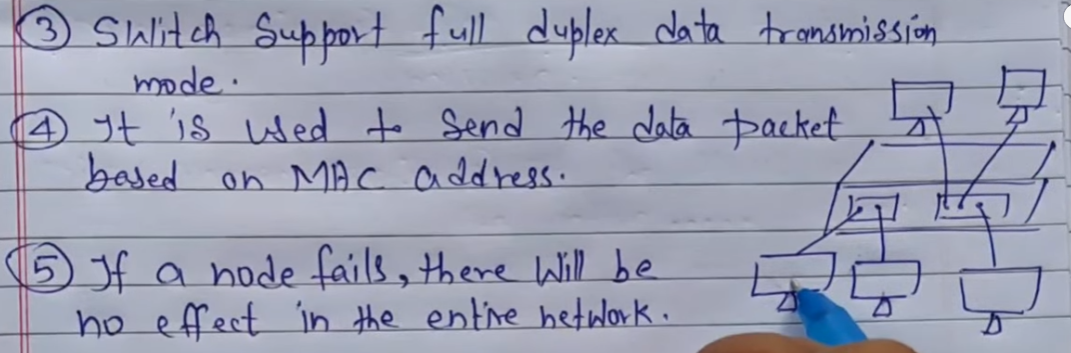 ③ Switch Support full duplex data transmission
mode.
④ It is used to send the data packet
based on MAC address.
⑤ If a node fails, there will be
no effect in the entire network.